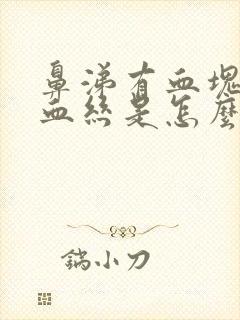 鼻涕有血塊
血絲是怎麼
鎬小刀